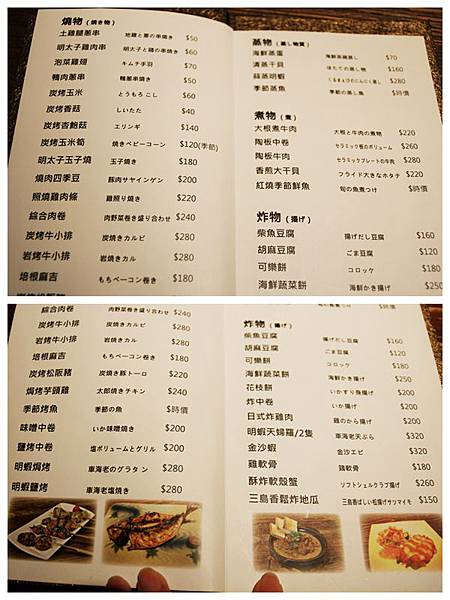 燒物 (燒き物)
土雞腿蔥串 地雞と蔥の串焼き $50
明太子雞肉串 明太子と鶏の串焼き $60
泡菜雞翅 キムチ手羽 $70
鴨肉蔥串 鴨蔥串焼き $50
炭烤玉米 とうもろこし $60
炭烤香菇 しいたた $40
炭烤杏鮑菇 エリンギ $140
炭烤玉米筍 焼きベビーコーン $120(季節)
明太子玉子燒 玉子焼き $180
燒肉四季豆 豚肉サヤインゲン $200
照燒雞肉條 雞照り焼き $220
綜合肉卷 肉野菜卷き盛り合わせ $240
炭烤牛小排 炭焼きカルビ $280
岩烤牛小排 岩焼きカル $280
培根麻吉 もちベーコン卷き $180
蒸物 (蒸し物質)
海鮮蒸蛋 $70
清蒸干貝 ほたての蒸し物 $180
蒜蒸明蝦 くるまえびのにんにく蒸し $280
季節蒸魚 季節の蒸し魚 $時價
煮物 (煮)
大根煮牛肉 大根と牛肉の煮物 $220
陶板中卷 セラミック板のボリューム $260
陶板牛肉 セラミックプレートの牛肉 $280
香煎大干貝 フライド大きなホタテ $220
紅燒季節鮮魚 旬の魚煮つけ $時價
炸物 (揚げ)
柴魚豆腐 揚げだし豆腐 $160
胡麻豆腐 ごま豆腐 $120
可樂餅 コロッケ $180
海鮮蔬菜餅 海鮮かき揚げ $250
綜合肉卷 肉野菜卷き盛り合わせ $240
炭烤牛小排 炭焼きカルビ $280
岩烤牛小排 岩焼きカル $280
培根麻吉 もちベーコン卷き $180
炭烤松阪豬 炭焼き豚トーロ $220
焗烤芋頭雞 太郎焼きチキン $240
季節烤魚 季節の魚 $時價
味噌中卷 いか味噌焼き $200
鹽烤中卷 塩ボリュームとグリル $200
明蝦焗烤 車海老のグラタン $280
明蝦鹽烤 車海老塩焼き $280
旬の魚煮つけ $時價
炸物 (揚げ)
柴魚豆腐 揚げだし豆腐 $160
胡麻豆腐 ごま豆腐 $120
可樂餅 コロッケ $180
海鮮蔬菜餅 海鮮かき揚げ $250
花枝餅 いかすり身揚げ $200
炸中卷 いか揚げ $200
日式炸雞肉 雞のから揚げ $200
明蝦天婦羅/2隻 車海老天ぷら $320
金沙蝦 金沙エビ $320
雞軟骨 雞軟骨 $180
酥炸軟殼蟹 ソフトシェルクラブ揚げ $260
三島香鬆炸地瓜 三島香ばしい松揚げサツマイモ $150